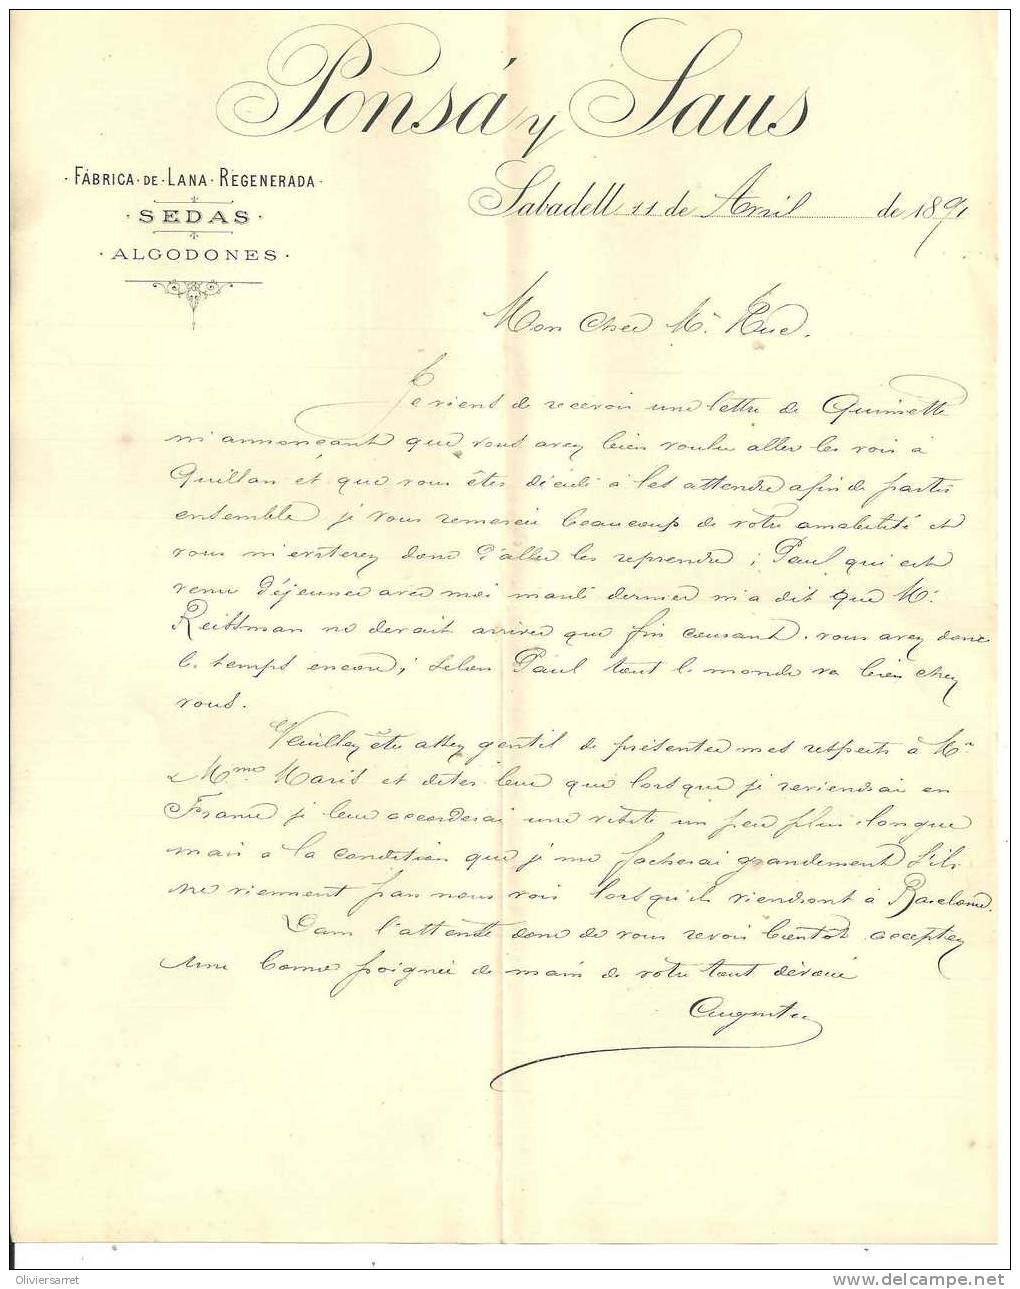 Ponsá y Saus
· FÁBRICA · DE · LANA · REGENERADA ·
· SEDAS ·
· ALGODONES ·
Sabadell 11 de Avril de 1891
Mon cher Mr.
Je viens de recevoir une lettre de
m'annonçant que vous avez bien voulu aller les voir à
Quillan et que vous êtes décidé à les attendre afin de partir
ensemble je vous remercie beaucoup de votre amabilité et
vous m'eviterez donc d'aller les reprendre ; Paul qui est
venu déjeuner avec moi mardi dernier m'a dit que Mr.
Reittman ne devait arriver que fin courant. vous avez donc
le temps encore ; selon Paul tout le monde va bien chez
vous.
Veuillez être assez gentil de présenter mes respects à Mr
& Mme Maris et dites leur que lorsque je reviendrai en
France je leur accorderai une visite un peu plus longue
mais a la condition que je me facherai grandement s'ils
ne viennent pas nous voir lorsqu'ils viendront à Barcelone.
Dans l'attente donc de vous revoir bientôt acceptez
une bonne poignée de main de votre tout dévoué
Oliviersarret
delcampe.net